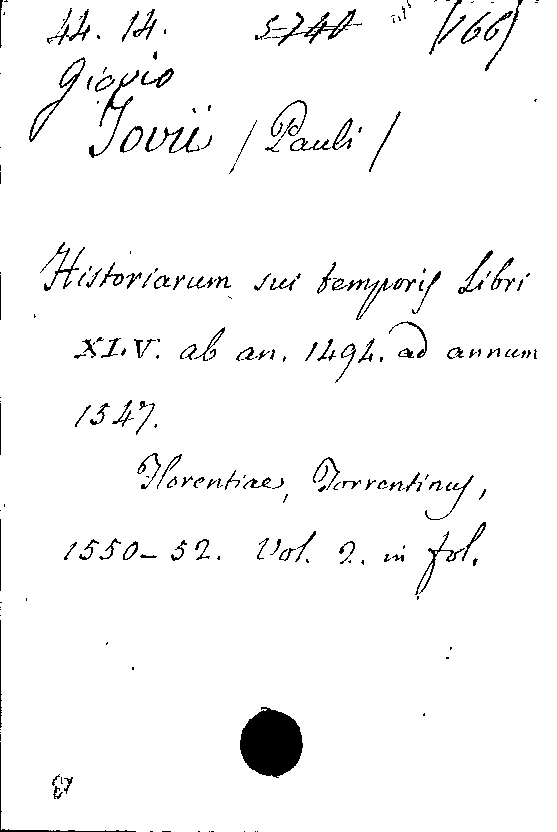 44. 14. 5740 (166)
Giovio
Jovii / Pauli /
Historiarum sui temporis Libri
XLV. ab an. 1494. ad annum
1547.
Florentiae, Torrentinus,
1550-52. Vol. 2. in fol.